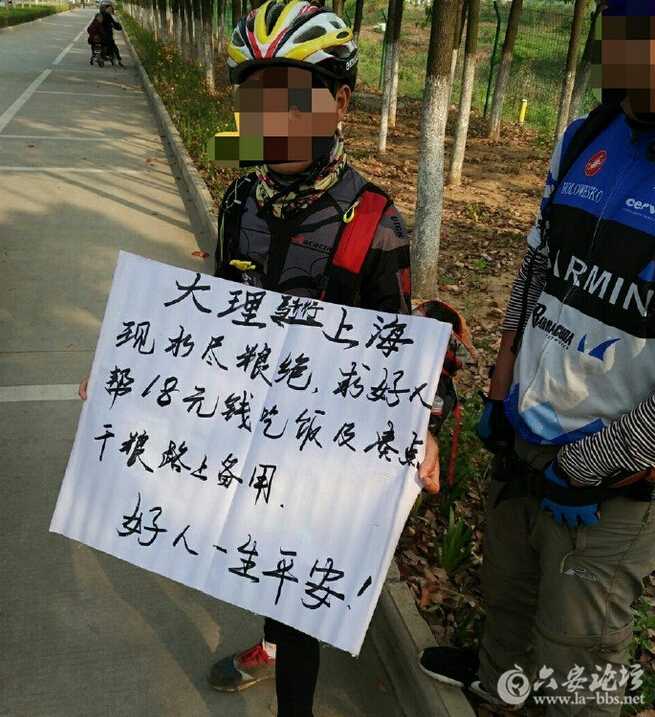 大理骑行上海
现水尽粮绝,求好人
帮18元钱吃饭及卖点
干粮路上备用.
好人一生平安!
CERV
GARMIN
六安论坛
www.la-bbs.net